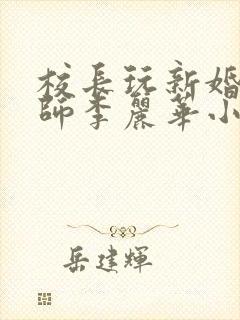 校長玩新婚
師李麗華小
岳建輝